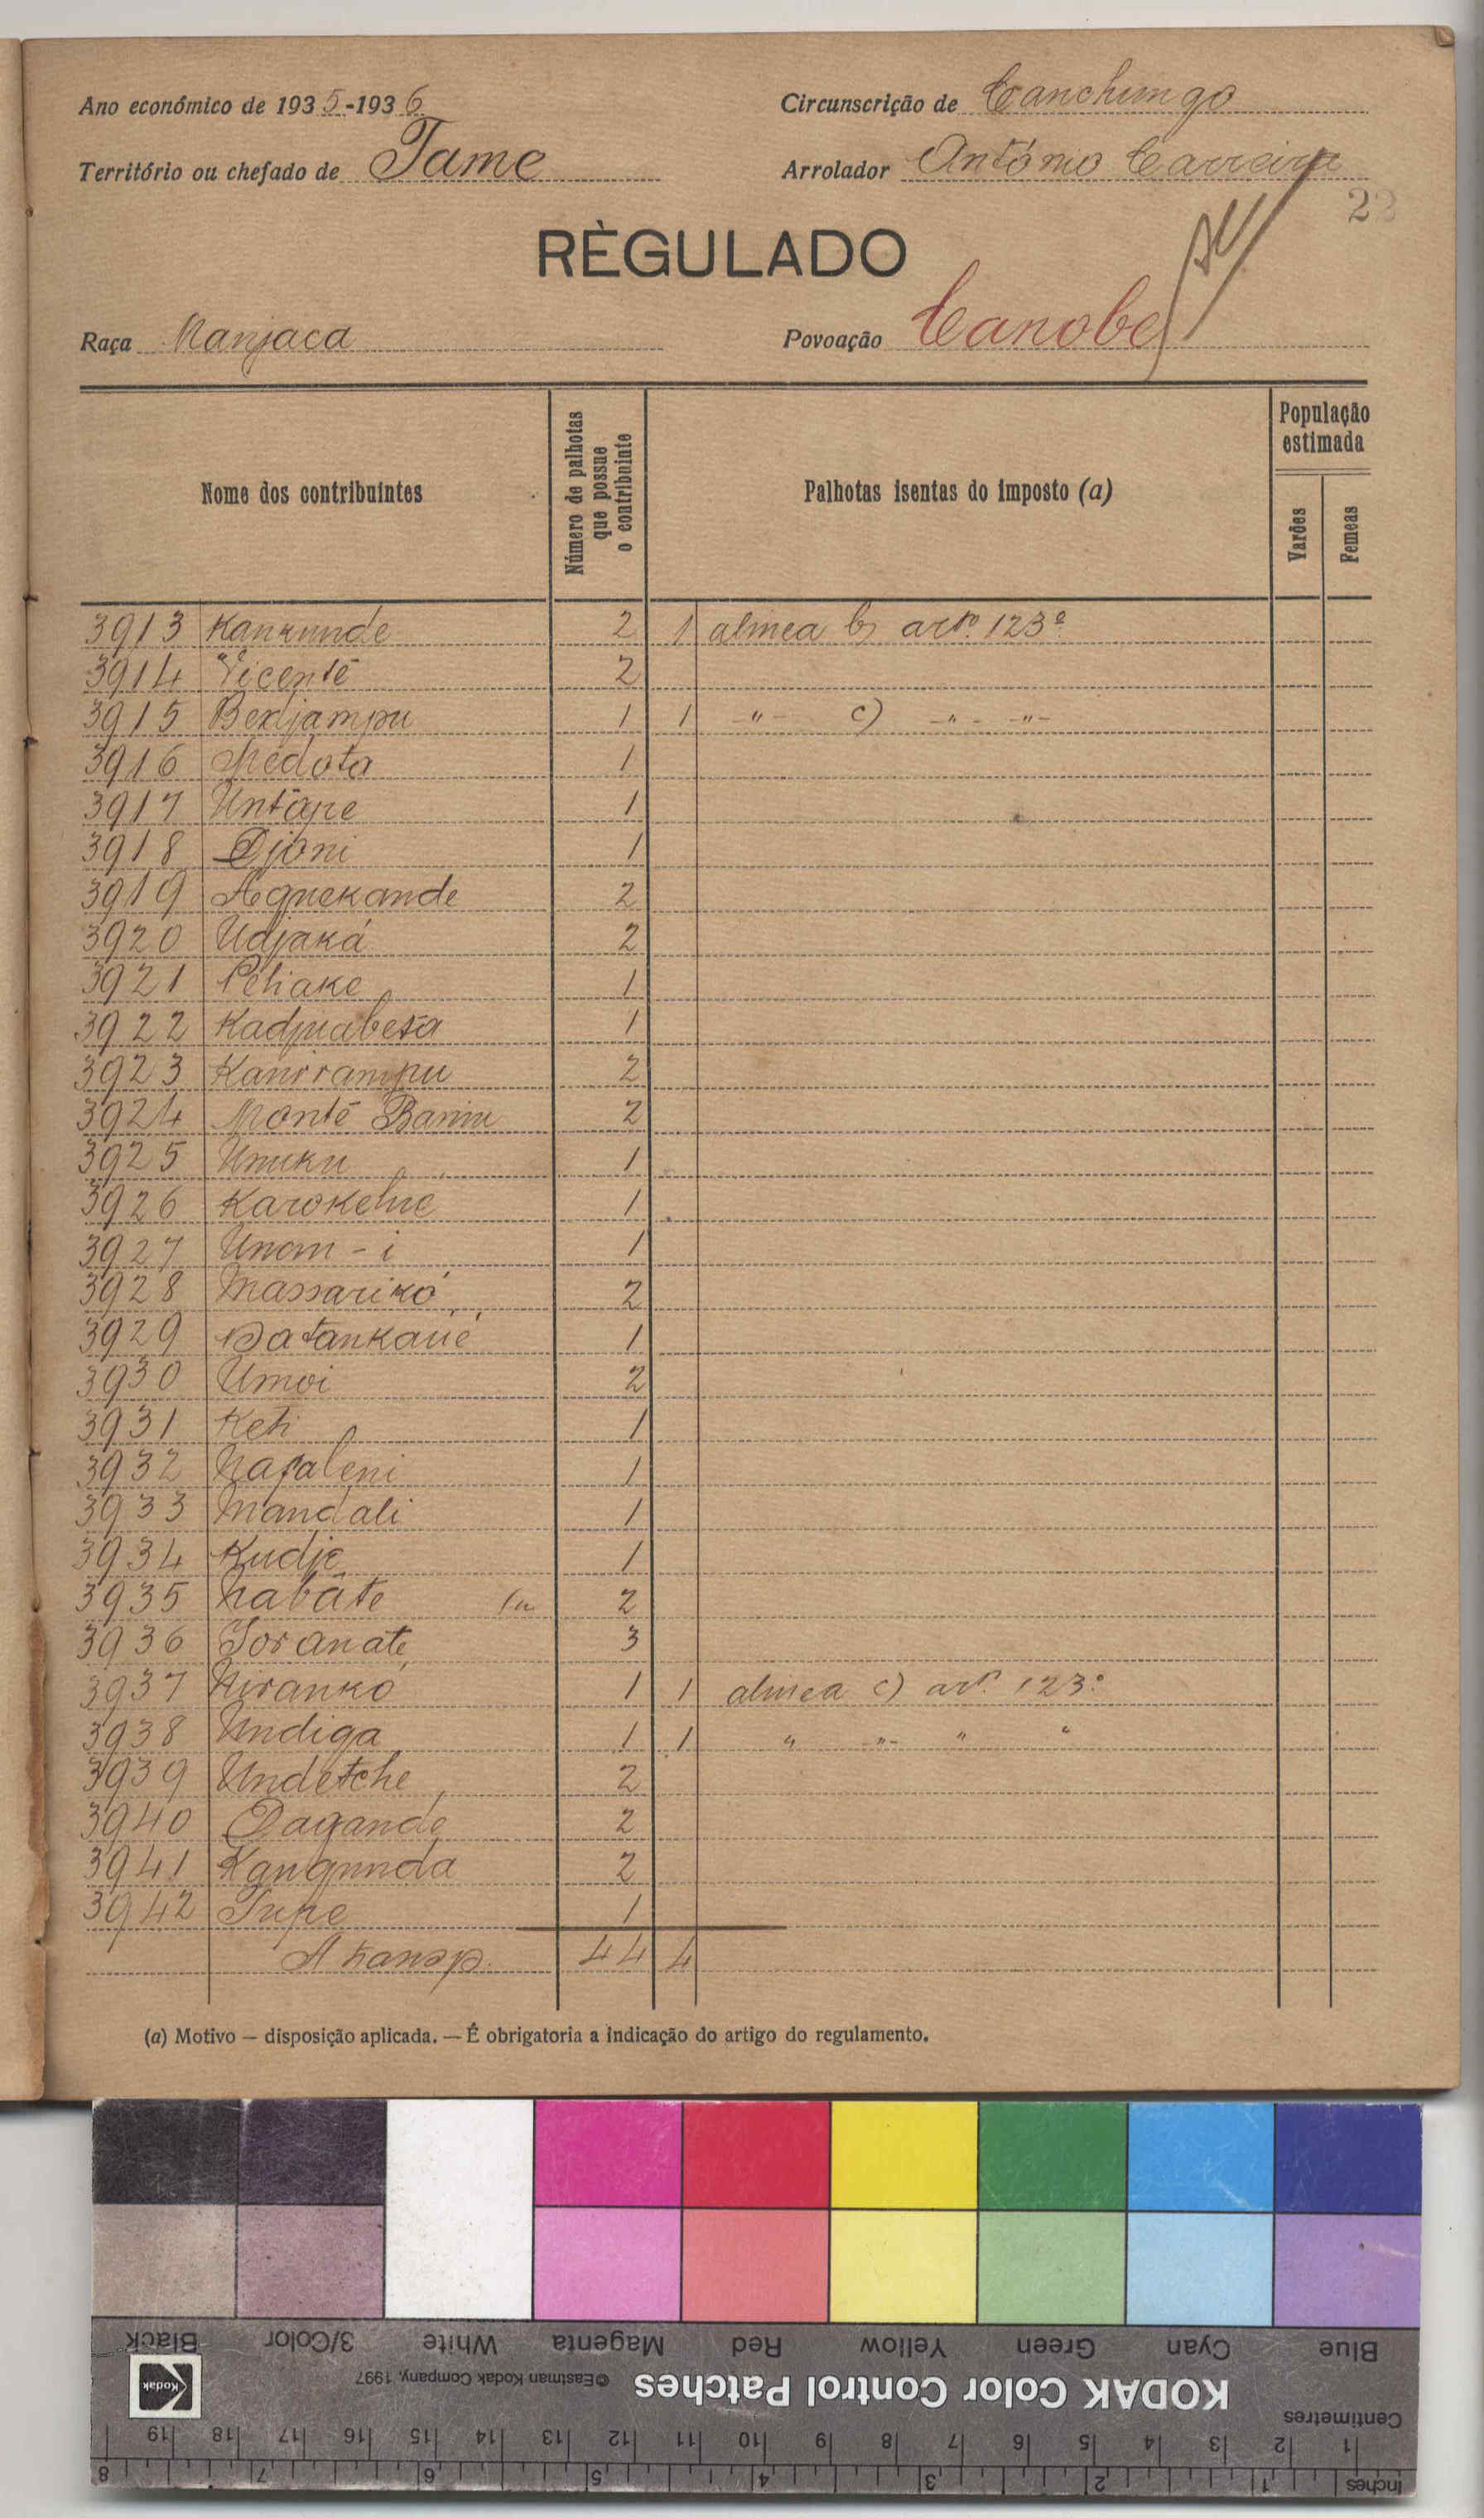 Ano económico de 1935-1936
Circunscrição de Canchungo
Território ou chefado de Tame
Arrolador António Carreira
22
RÈGULADO
Raça Manjaca
Povoação Canobe
Nome dos contribuintes
Número de palhotas que possue o contribuinte
Palhotas isentas do imposto (a)
População estimada
Varões
Femeas
3913 2 1 alinea b) artº. 123º
3914 Vicente 2
3915 Bendjampu 1 1 -"- c) -"- -"-
3916 Médota 1
3917 Untápe 1
3918 Djoni 1
3919 Agnekande 2
3920 Udjaká 2
3921 Peliake 1
3922 Kadjuabesa 1
3923 Kanirampu 2
3924 Monté 2
3925 Umuku 1
3926 1
3927 Unom-i 1
3928 Massarikó 2
3929 Batankaué 1
3930 Umoi 2
3931 Keti 1
3932 Nafaleni 1
3933 Mandali 1
3934 Kudje 1
3935 Nabáte 2
3936 Joranate 3
3937 Niranko 1 1 alinea c) artº. 123º
3938 Undiga 1 1 " -"- " "
3939 Undetche 2
3940 Dagande 2
3941 Kangunda 2
3942 1
A transp. 44 4
(a) Motivo — disposição aplicada. — É obrigatoria a indicação do artigo do regulamento.
Blue Cyan Green Yellow Red Magenta White 3/Color Black
KODAK Color Control Patches ©Eastman Kodak Company, 1997
Kodak
Centimetres
1 2 3 4 5 6 7 8 9 10 11 12 13 14 15 16 17 18 19
Inches 1 2 3 4 5 6 7 8